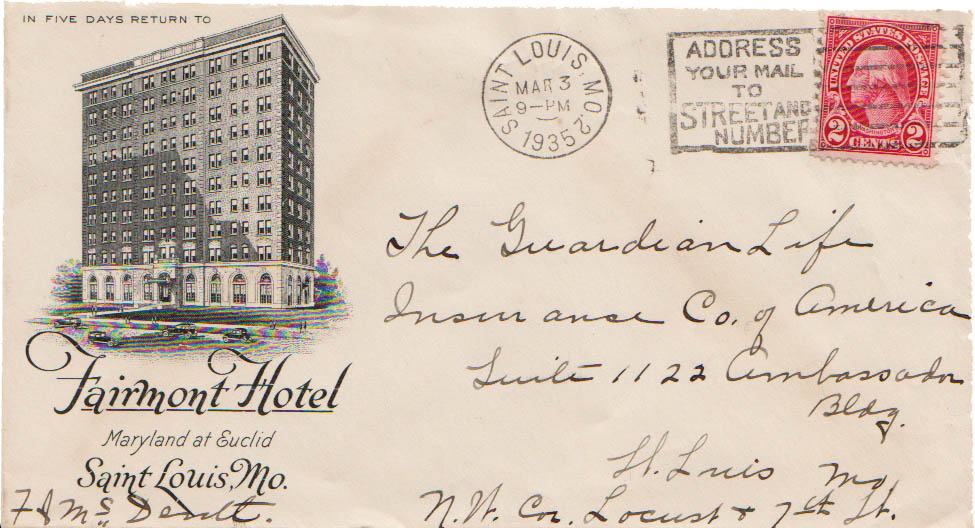 IN FIVE DAYS RETURN TO
Fairmont Hotel
Maryland at Euclid
Saint Louis, Mo.
SAINT LOUIS, MO. 2
MAR 3
9-PM
1935
ADDRESS
YOUR MAIL
TO
STREET AND
NUMBER
UNITED STATES POSTAGE
WASHINGTON
2 CENTS 2
The Guardian Life
Insuranse Co. of America
Suite 1122 Ambassador
Bldg.
St. Luis Mo
N.W. Cor. Locust & 7th St.